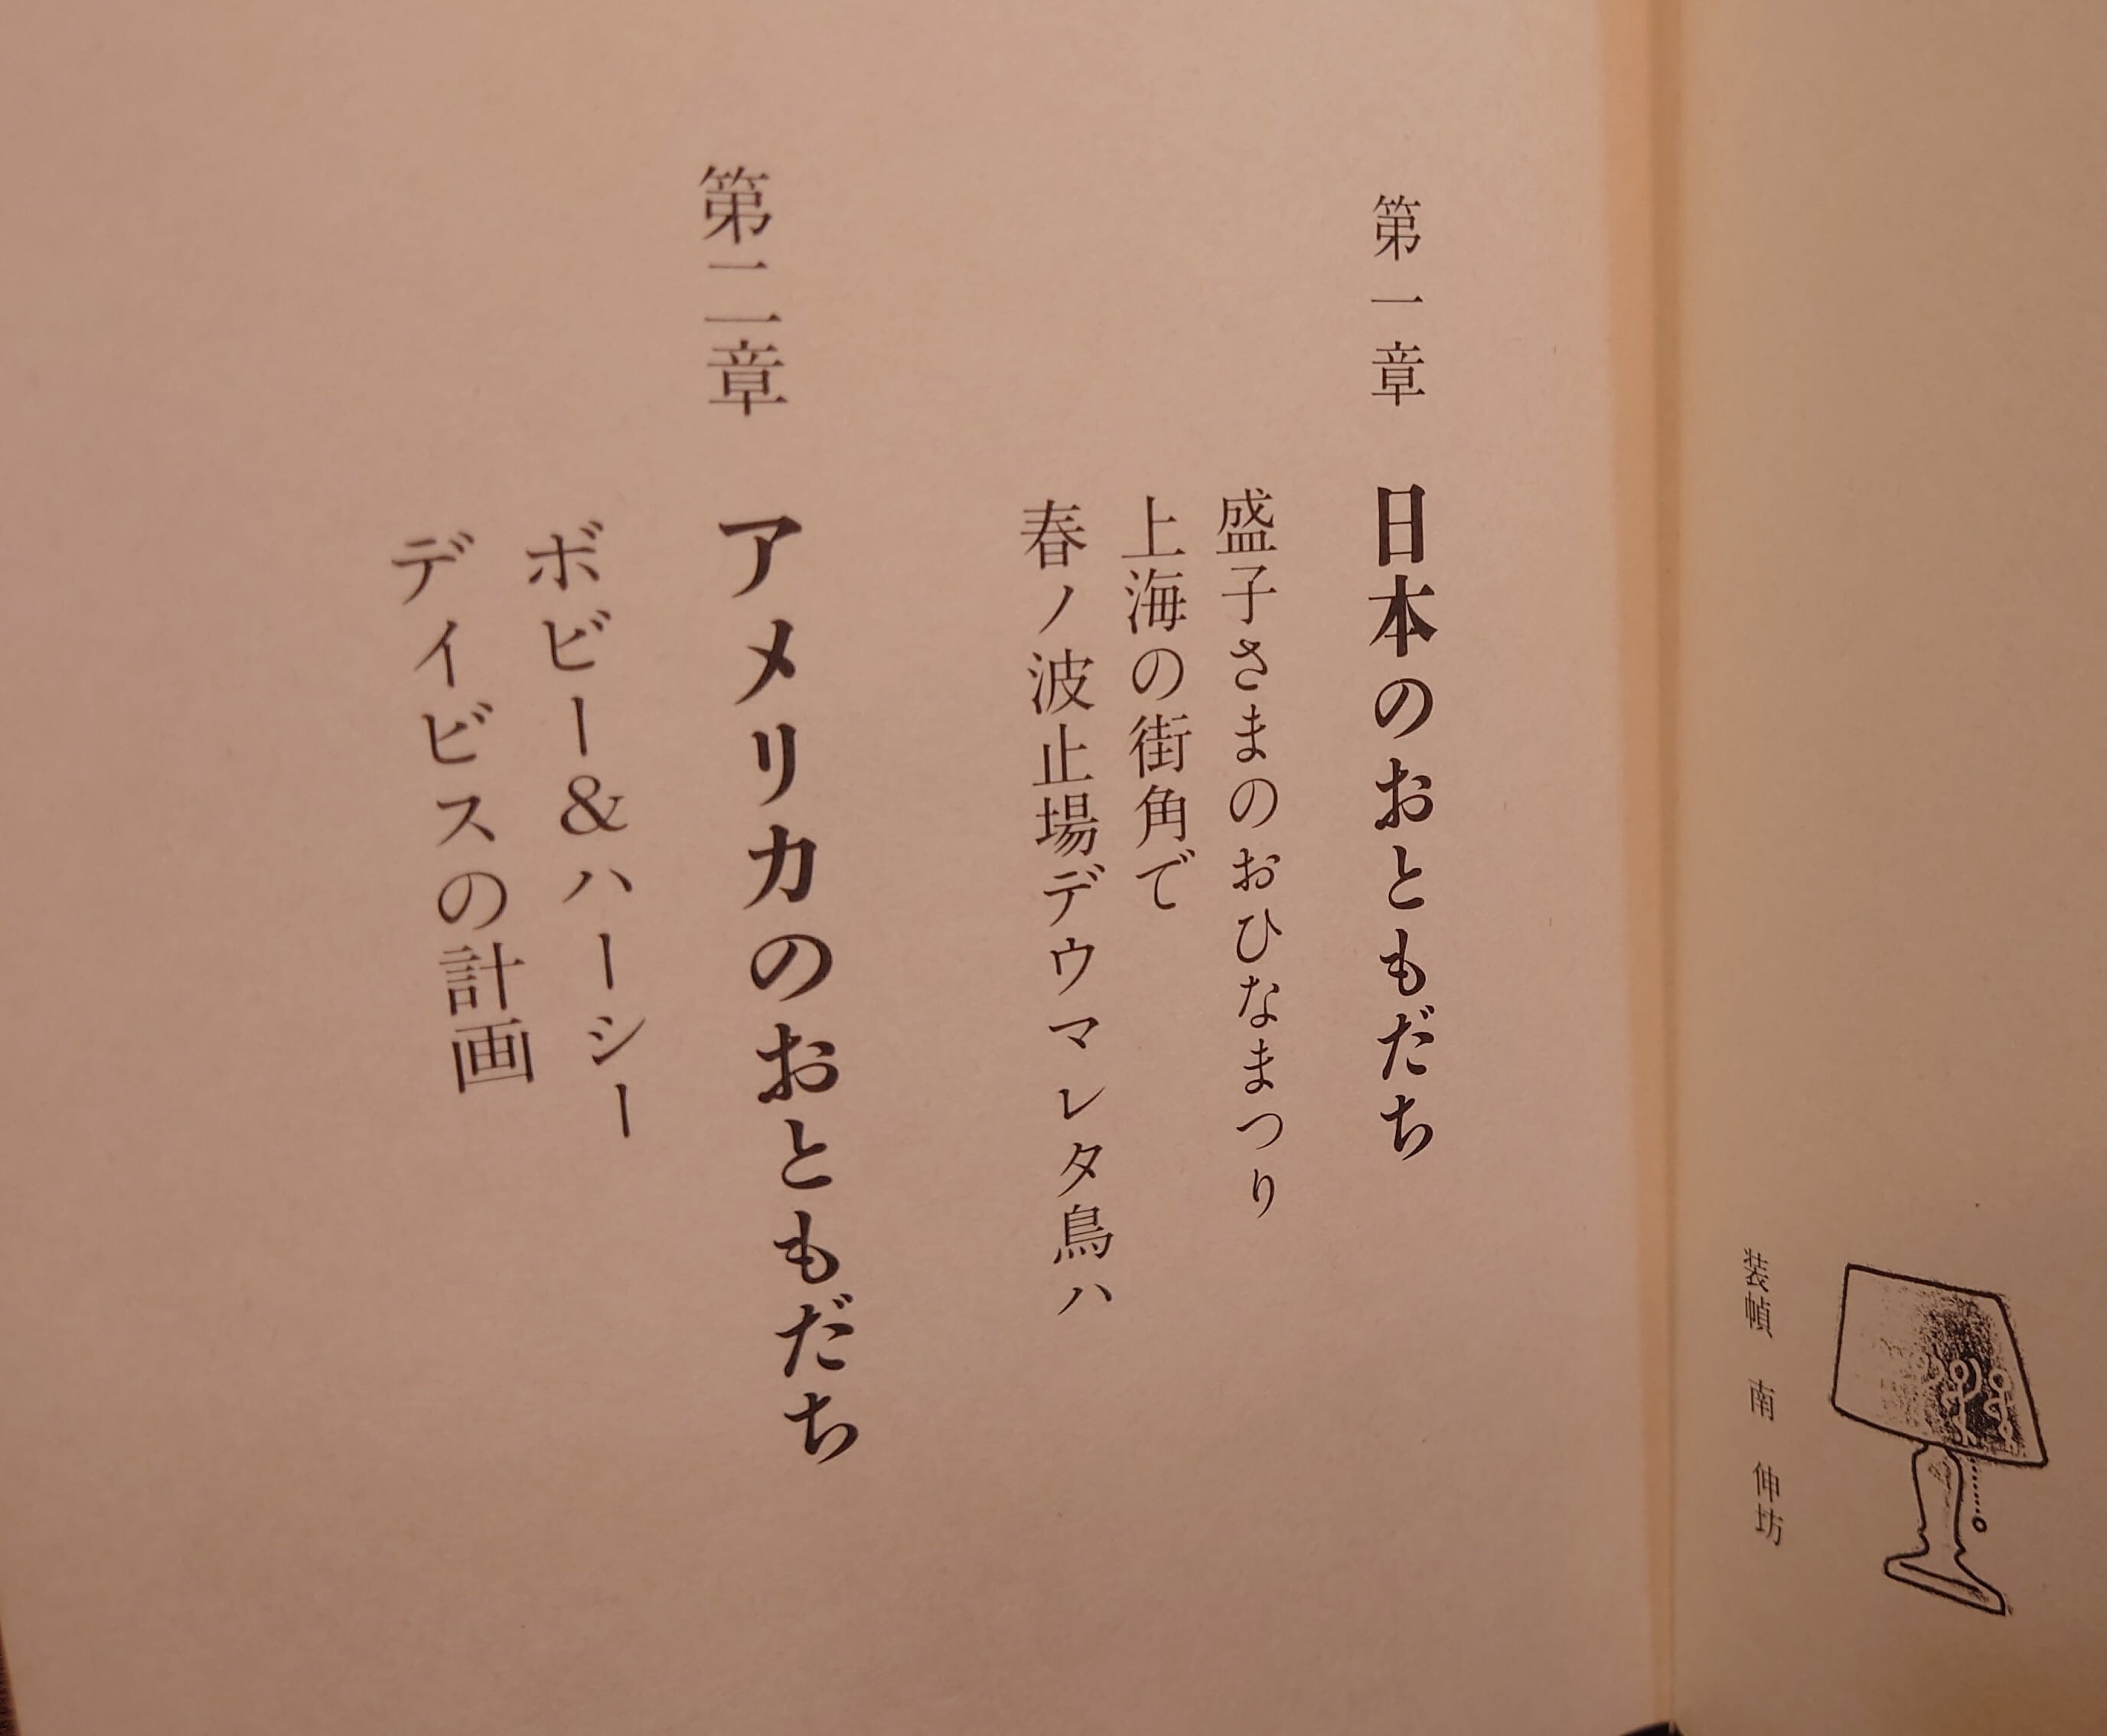 装幀 南 伸坊
第一章 日本のおともだち
盛子さまのおひなまつり
上海の街角で
春ノ波止場デウマレタ鳥ハ
第二章 アメリカのおともだち
ボビー&ハーシー
デイビスの計画